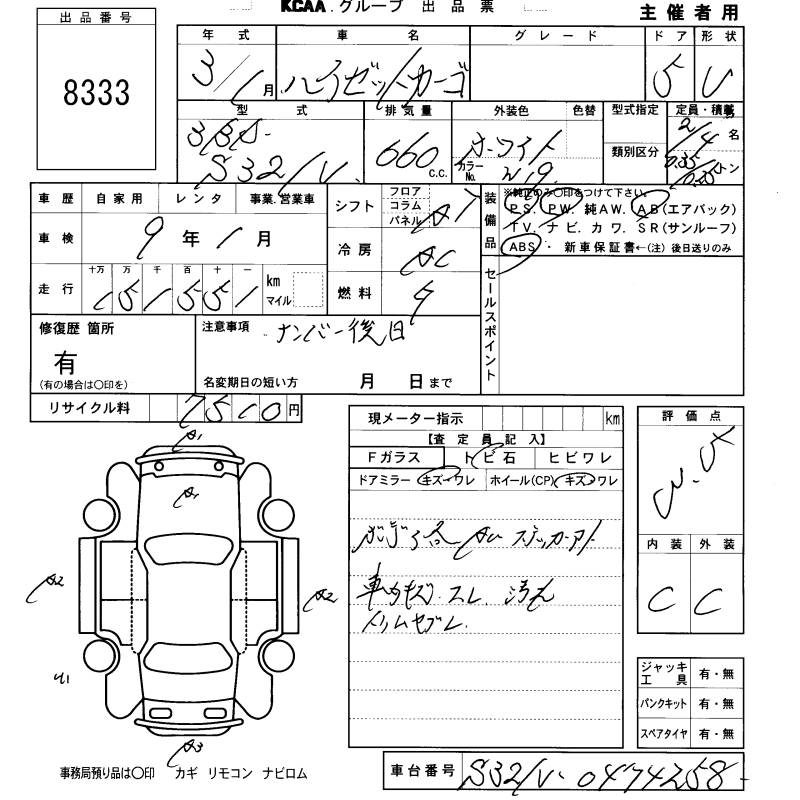 KCAA.グループ 出品票
主催者用
出品番号
8333
年式 車名 グレード ドア 形状
3/1月 ハイゼットカーゴ 5 V
型式 排気量 外装色 色替 型式指定 定員・積載
3BD-
S321V 660 c.c. ホワイト カラーNo. W19 類別区分 2/4名 0.35/ トン
車歴 自家用 レンタ 事業.営業車
車検 9年1月
走行 十万 万 千 百 十 一 151551 km マイル
シフト フロア コラム パネル AT
冷房 AC
燃料 G
装備品 ※純正のみ〇印をつけて下さい。
PS. PW. 純AW. AB(エアバック)
TV. ナビ. カワ. SR(サンルーフ)
ABS ・ 新車保証書←(注) 後日送りのみ
セールスポイント
修復歴 箇所
有
(有の場合は〇印を)
注意事項 ナンバー後日
名変期日の短い方 月 日まで
リサイクル料 7510円
現メーター指示 km
【査定員記入】
Fガラス トビ石 ヒビワレ
ドアミラー キズ・ワレ ホイール(CP) キズ・ワレ
車内キズ.スレ.汚れ
評価点
内装 外装
C C
A1
A1
A2 A2
A3
ジャッキ工具 有・無
パンクキット 有・無
スペアタイヤ 有・無
事務局預り品は〇印 カギ リモコン ナビロム
車台番号 S321V-0474258